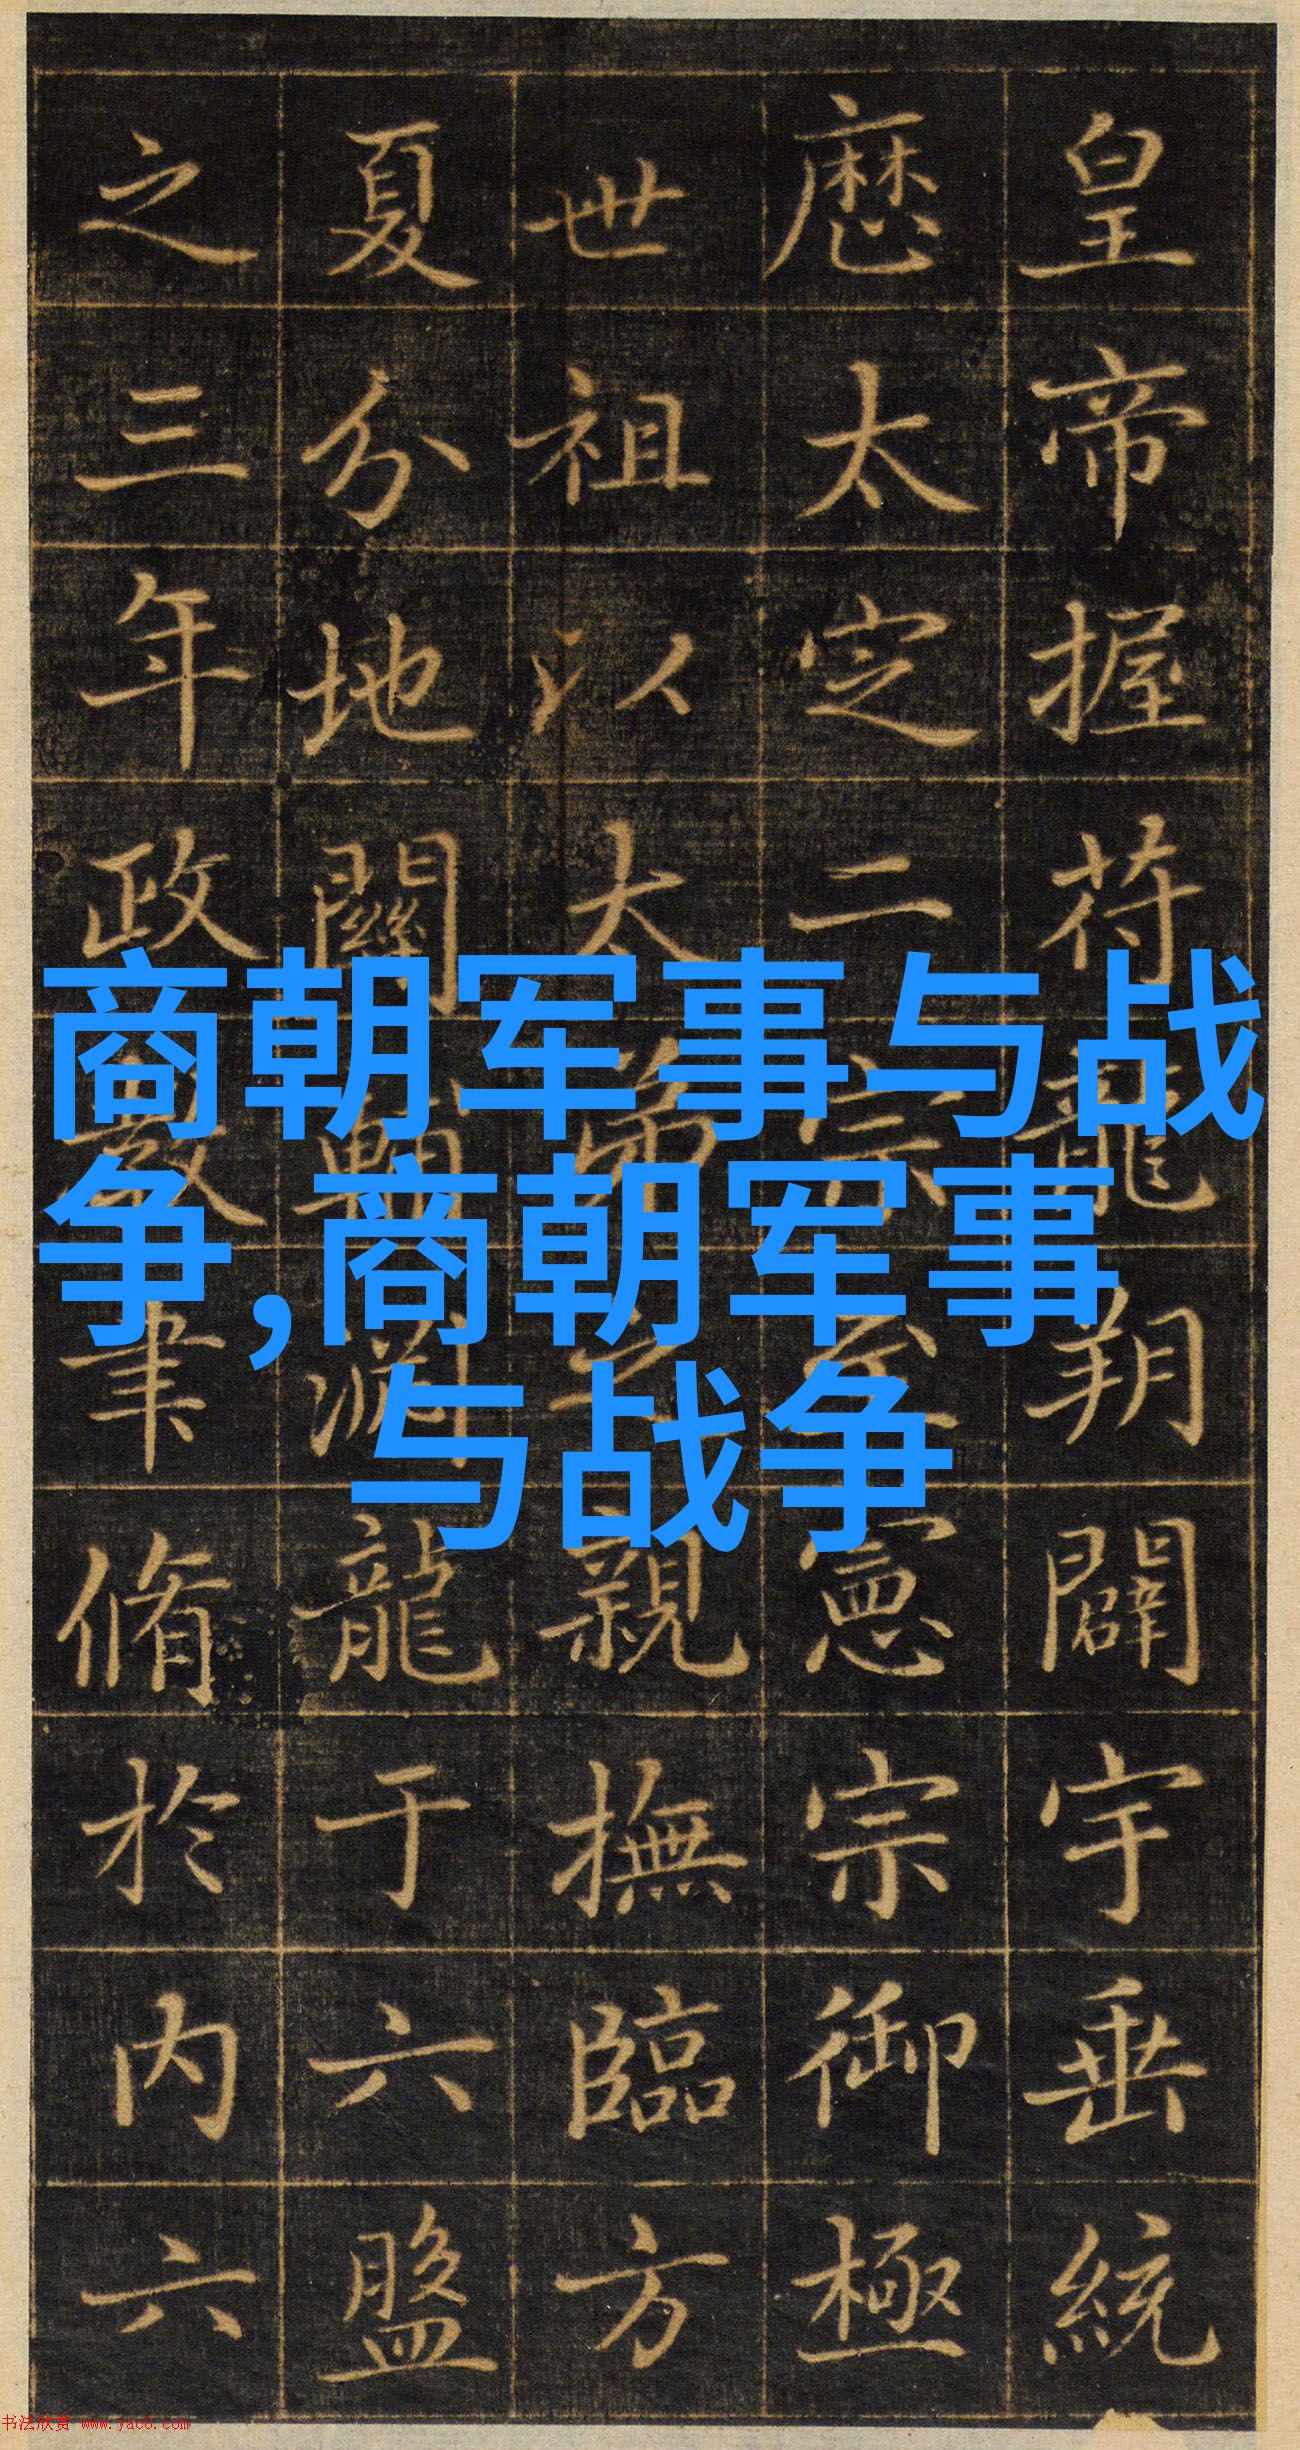 皇帝握符龍朔闢宇垂統
厯太定二宗至憲宗御極
世祖以太弟之親撫臨方
夏分地關輔淵龍于六盤
之三年政聿脩於内六
商朝军事与战
争,商朝军事
与战争
书法欣赏 www.yac8.com